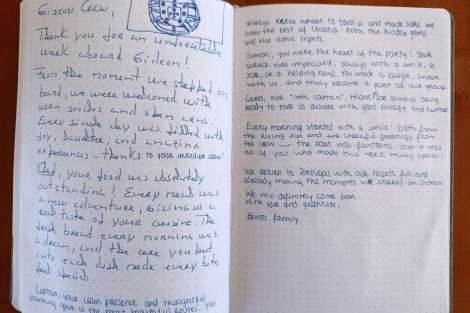 Gideon Crew,
Thank you for an unforgettable
week aboard Gideon!
From the moment we stepped on
board, we were welcomed with
warm smiles and open arms.
Every single day was filled with
joy, laughter, and amazing
experiences – thanks to your incredible crew!
Chef, your food was absolutely
outstanding! Every meal was
a new adventure, giving us a
real taste of your cuisine. The
fresh bread every morning was
a dream, and the care you put
into each dish made every bite
feel special.
Captain, your calm presence and thoughtful
planning gave us the most beautiful routes. You
always knew where to take us and made sure we
saw the best of Croatia – both the hidden gems
and the iconic sights.
Simon, you were the heart of the party! Your
service was impeccable, always with a smile, a
joke, or a helping hand. You made us laugh,
with us, and truly became a part of our group.
our "little captain", thanks for always being
ready to take us ashore with good energy and humor!
Every morning started with a smile – both from
the rising sun and the cheerful greetings from
the crew – the boat was fantastic, but it was
all of you who made this week truly special!
We return to Portugal with our hearts full and
already missing the moments we shared on Gideon.
We will definitely come back
With love and gratitude,
family.